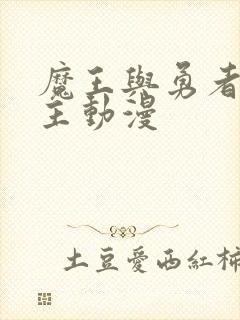 魔王與勇者
主動漫
土豆愛西紅柿